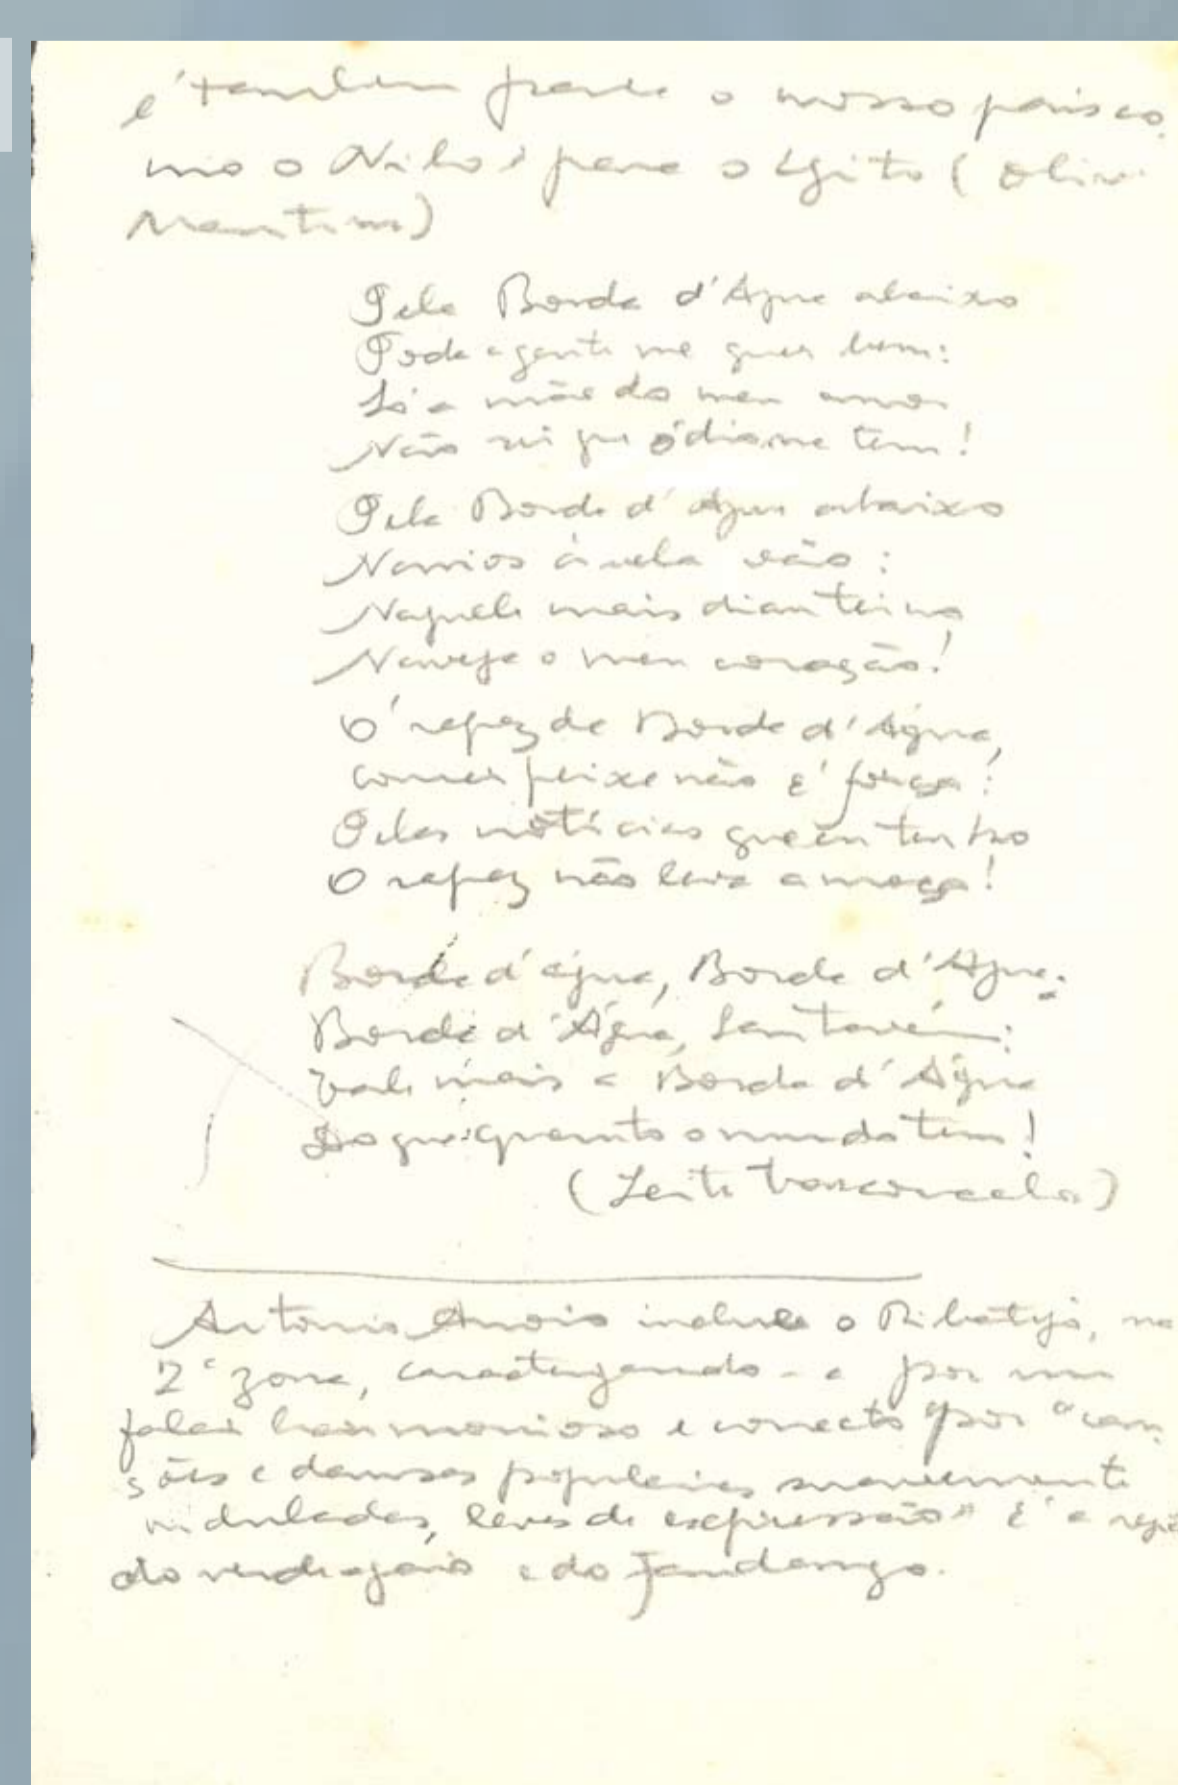 é também para o nosso país co
mo o Nilo é para o Egito (Oliv.
Martins)
Pela Borda d'Água abaixo
Toda a gente me quer bem:
Só a mãe do meu amor
Não sei que ódio me tem!
Pela Borda d'Água abaixo
Navios à vela vão:
Naquele mais dianteiro
Navega o meu coração!
O' rapaz da Borda d'Água,
comer peixe não é força:
Pelas notícias que eu tenho
O rapaz não leva a moça!
Borda d'água, Borda d'Água.
Borda d'Água, Santarém:
Vale mais a Borda d'Água
Do que quanto o mundo tem!
(Leite Vasconcelos)
António Arroio inclue o Ribatejo, na
2ª zona, caracterizando-a por um
falar harmonioso e correcto por "can
sões e dansas populares suavemente
onduladas, leves de expressão" É a regiã
do verdegaio e do fandango.